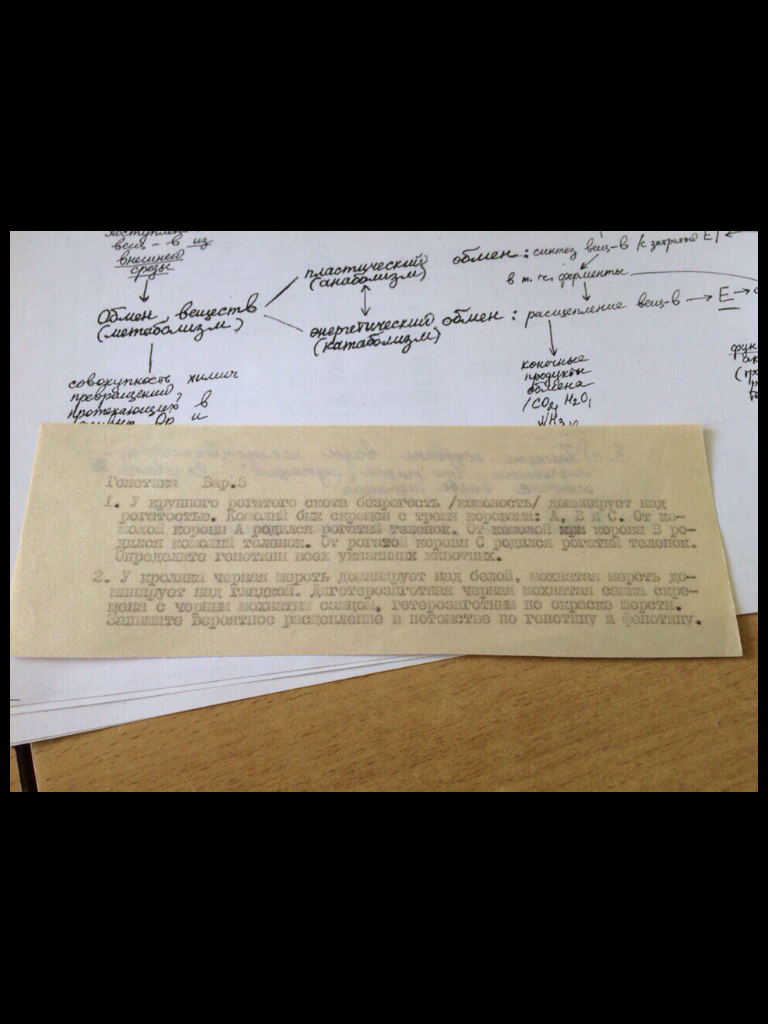 вещ-в из
внешней
среды
Обмен веществ
(метаболизм)
совокупность химич
превращений,
протекающих в
пластический обмен: синтез вещ-в /с затратой E/
(анаболизм)
в т.ч. ферменты
энергетический обмен: расщепление вещ-в → E →
(катаболизм)
конечные
продукты
обмена
/CO2, H2O,
Генетика Вар.5
1. У крупного рогатого скота безрогость /комолость/ доминирует над
рогатостью. Комолый бык скрещен с тремя коровами: А, В и С. От ко-
молой коровы А родился рогатый теленок. От комолой коровы В ро-
дился комолый теленок. От рогатой коровы С родился рогатый теленок.
Определите генотипы всех указанных животных.
2. У кролика черная шерсть доминирует над белой, мохнатая шерсть до-
минирует над гладкой. Дигетерозиготная черная мохнатая самка скре-
щена с черным мохнатым самцом, гетерозиготным по окраске шерсти.
Запишите Вероятное расщепление в потомстве по генотипу и фенотипу.